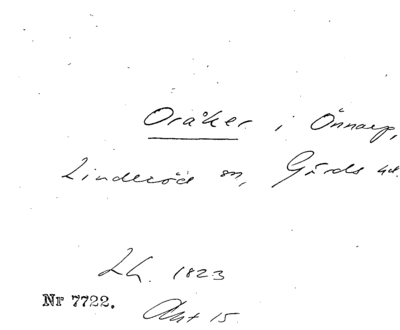 Oråker i Önnarp,
Linderöd sn, Gärds hd.
Lh. 1823
Nr 7722. Akt 15.